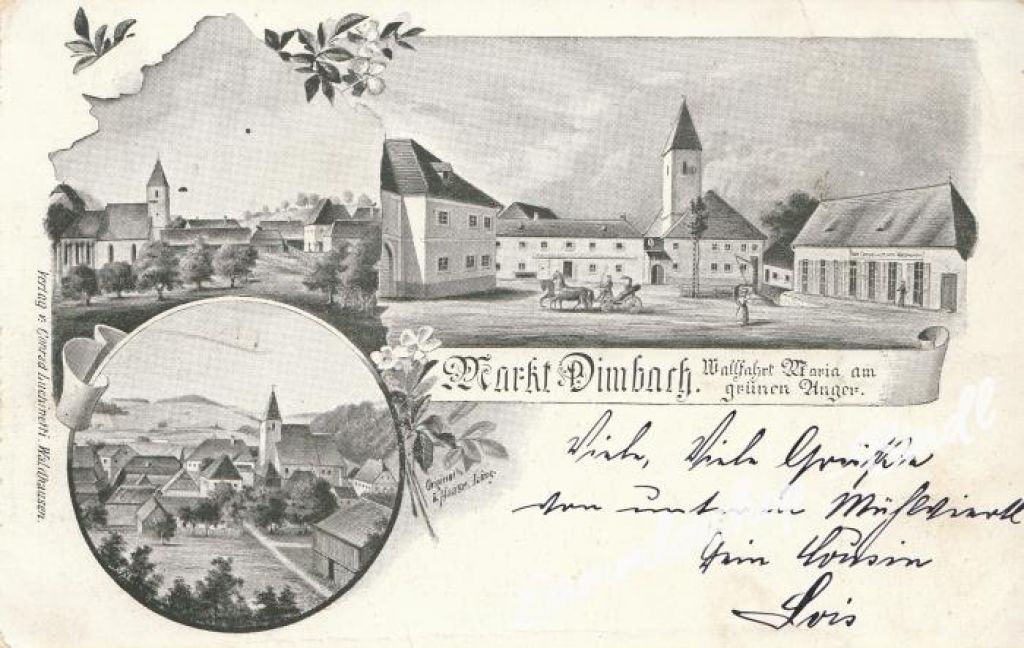 Markt Dimbach.
Wallfahrt Maria am
grünen Anger.
Verlag v. Conrad Luchinetti, Waldhausen.
Original
Viele, Viele Grüße
von unterm Mühlviertl
Dein Cousin
Lois